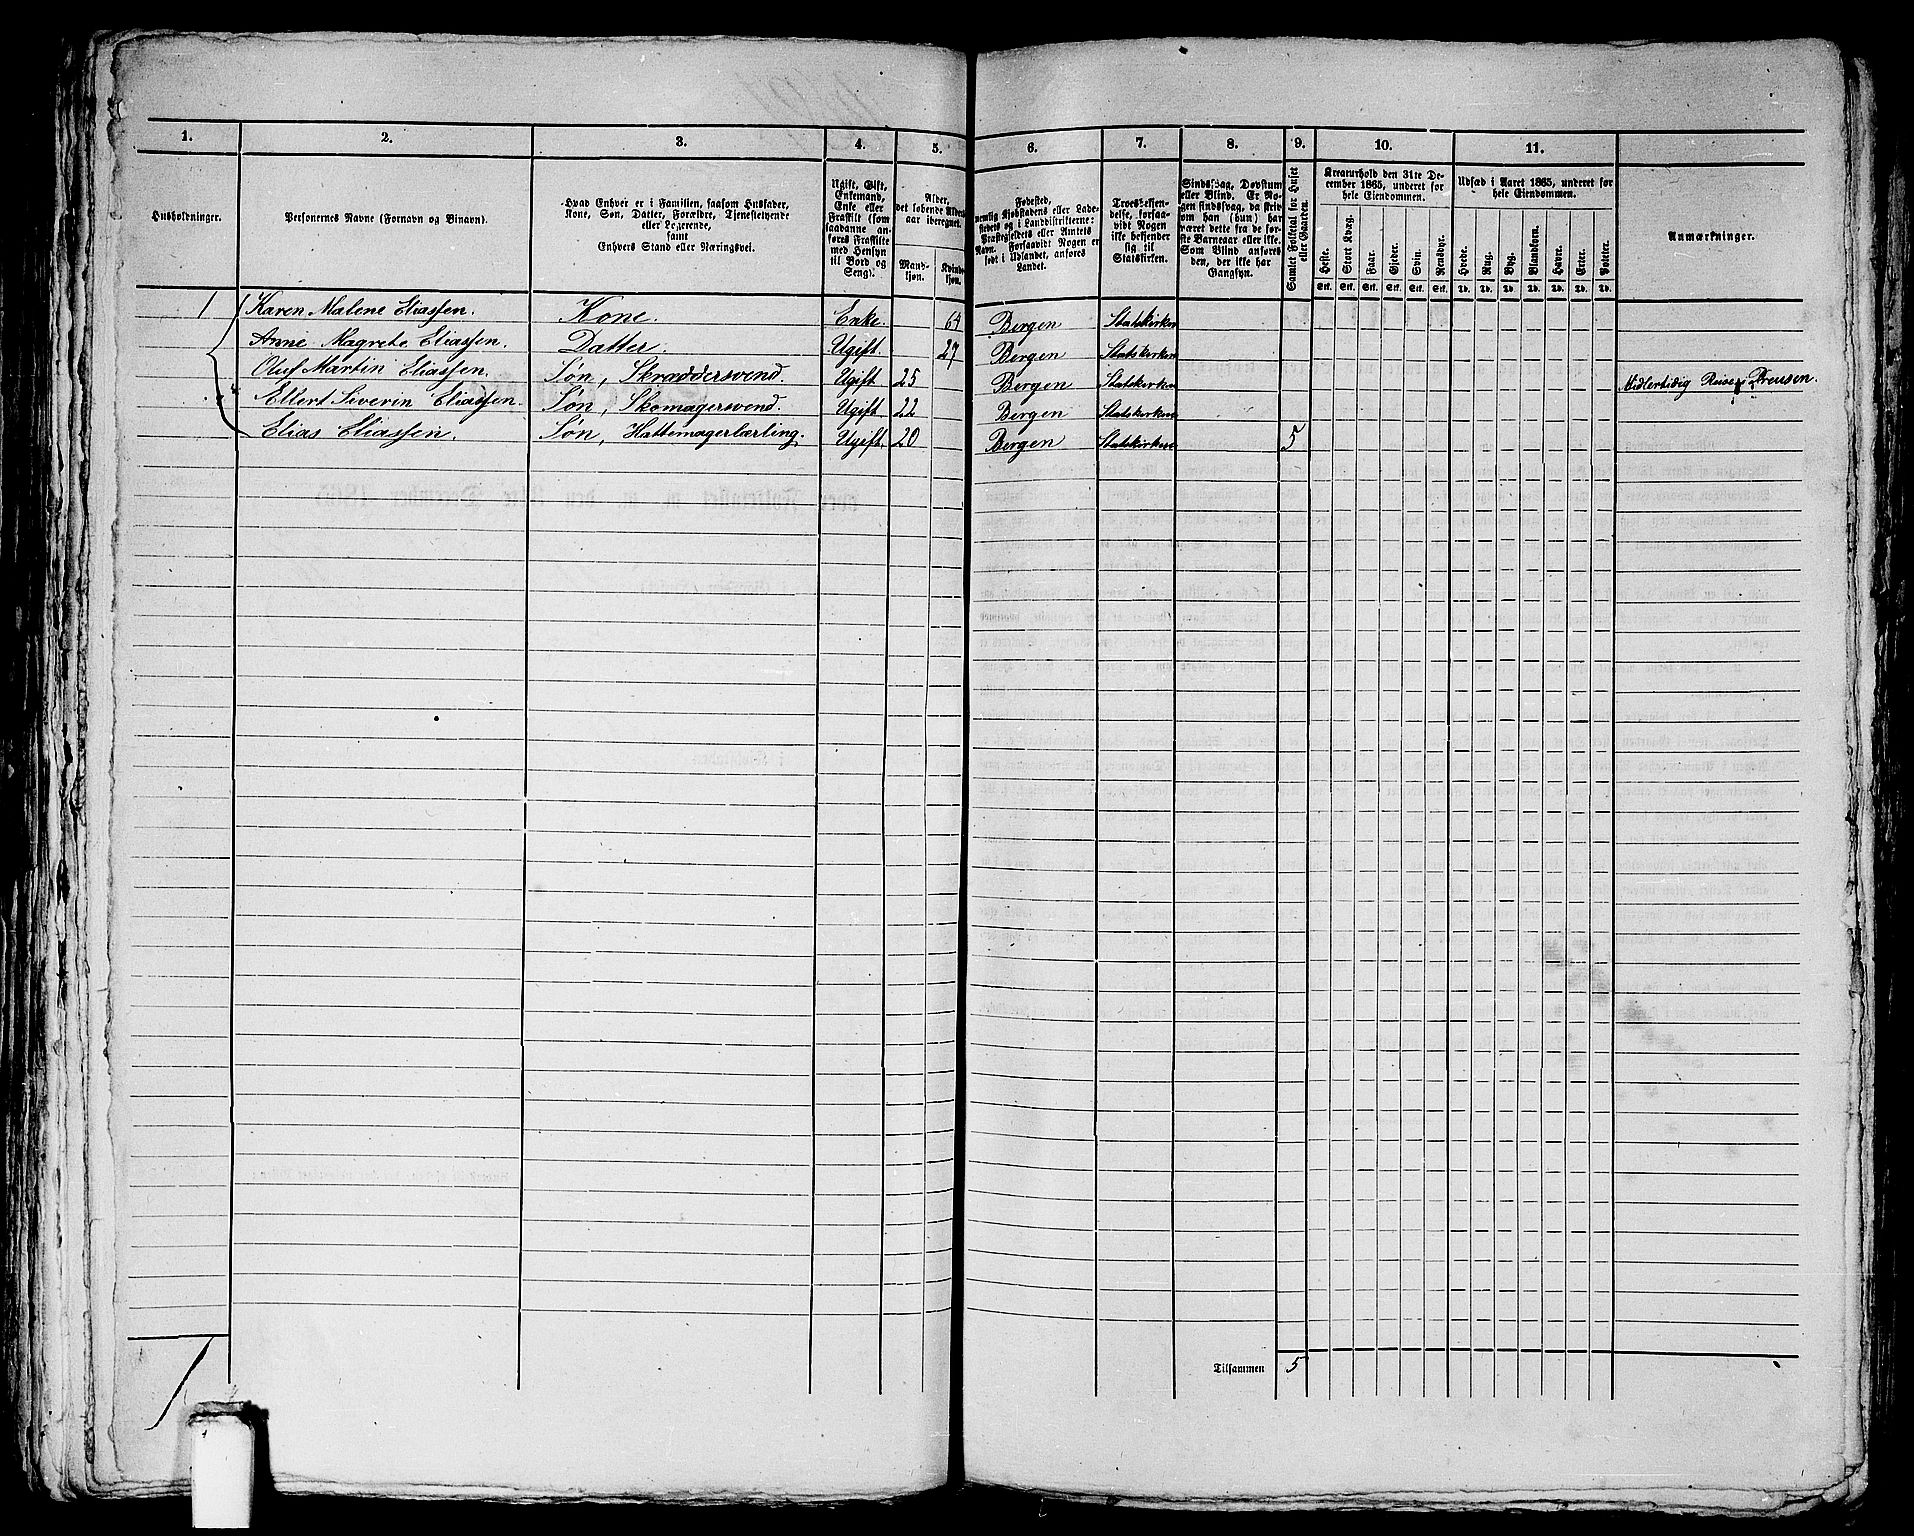 1. 2. 3. 4. 5. 6. 7. 8. 9. 10. 11.
Husholdninger.
Personernes Navne (Fornavn og Binavn).
Hvad Enhver er i Familien, saasom Husfader,
Kone, Søn, Datter, Forældre, Tjenestetyende
eller Logerende,
samt
Enhvers Stand eller Næringsvei.
Ugift, Gift,
Enkemand,
Enke eller
Fraskilt (som
saadanne an-
føres Fraskilte
med Hensyn
til Bord og
Seng).
Alder,
det løbende Alders-
aar iberegnet.
Mand-
kjøn.
Kvinde-
kjøn.
Fødested,
nemlig Kjøbstadens eller Lade-
stedets og i Landdistrikterne:
Præstegjeldets eller Amtets
Navn. Forsaavidt Nogen er
født i Udlandet, anføres
Landet.
Troesbekjen-
delse, forsaa-
vidt Nogen
ikke bekjender
sig til
Statskirken.
Sindssvag, Døvstum
eller Blind. Er No-
gen sindssvag, da skriv
om han (hun) har
været dette fra de før-
ste Barneaar eller ikke.
Som Blind anføres
den, der ikke har
Gangsyn.
Samlet Folketal for Huset
eller Gaarden.
Kreaturhold den 31te De-
cember 1865, underet for
hele Eiendommen.
Heste. Stort Kvæg. Faar. Gjeder. Svin. Rensdyr.
Stk. Stk. Stk. Stk. Stk. Stk.
Udsæd i Aaret 1865, underet for
hele Eiendommen.
Hvede. Rug. Byg. Blandkorn. Havre. Erter. Poteter.
Td. Td. Td. Td. Td. Td. Td.
Anmærkninger.
1 Karen Malene Eliassen. Kone. Enke. 64 Bergen Statskirken
Anne Magrete Eliassen. Datter. Ugift. 27 Bergen Statskirken
Oluf Martin Eliassen. Søn, Skræddersvend. Ugift 25 Bergen Statskirken Midlertidig Reise i Preusen.
Ellert Severin Eliassen. Søn, Skomagersvend. Ugift 22 Bergen Statskirken
Elias Eliassen. Søn, Hattemagerlærling. Ugift. 20 Bergen Statskirken 5
Tilsammen 5
1